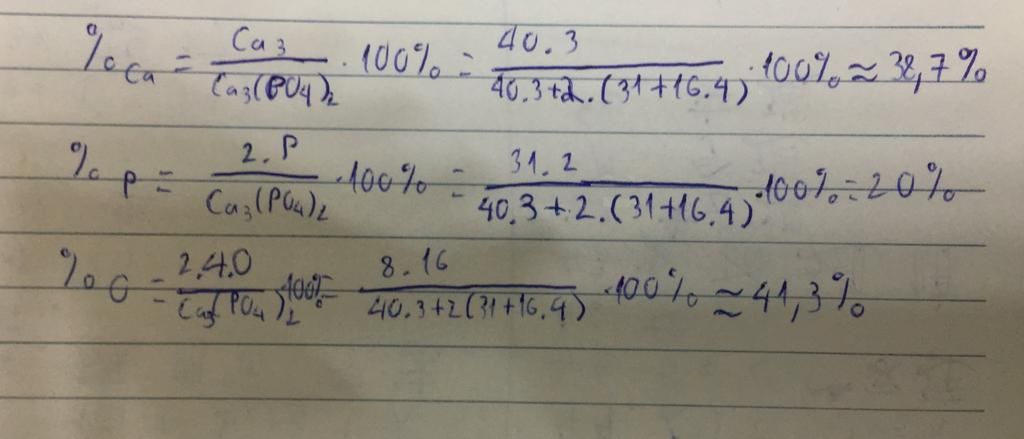 %Ca = Ca3/Ca3(PO4)2 · 100% = 40.3/40.3+2.(31+16.4) · 100% ≈ 38,7%
%P = 2.P/Ca3(PO4)2 · 100% = 31.2/40.3+2.(31+16.4) · 100% = 20%
%O = 2.4.O/Ca3(PO4)2 · 100% = 8.16/40.3+2(31+16.4) · 100% ≈ 41,3%